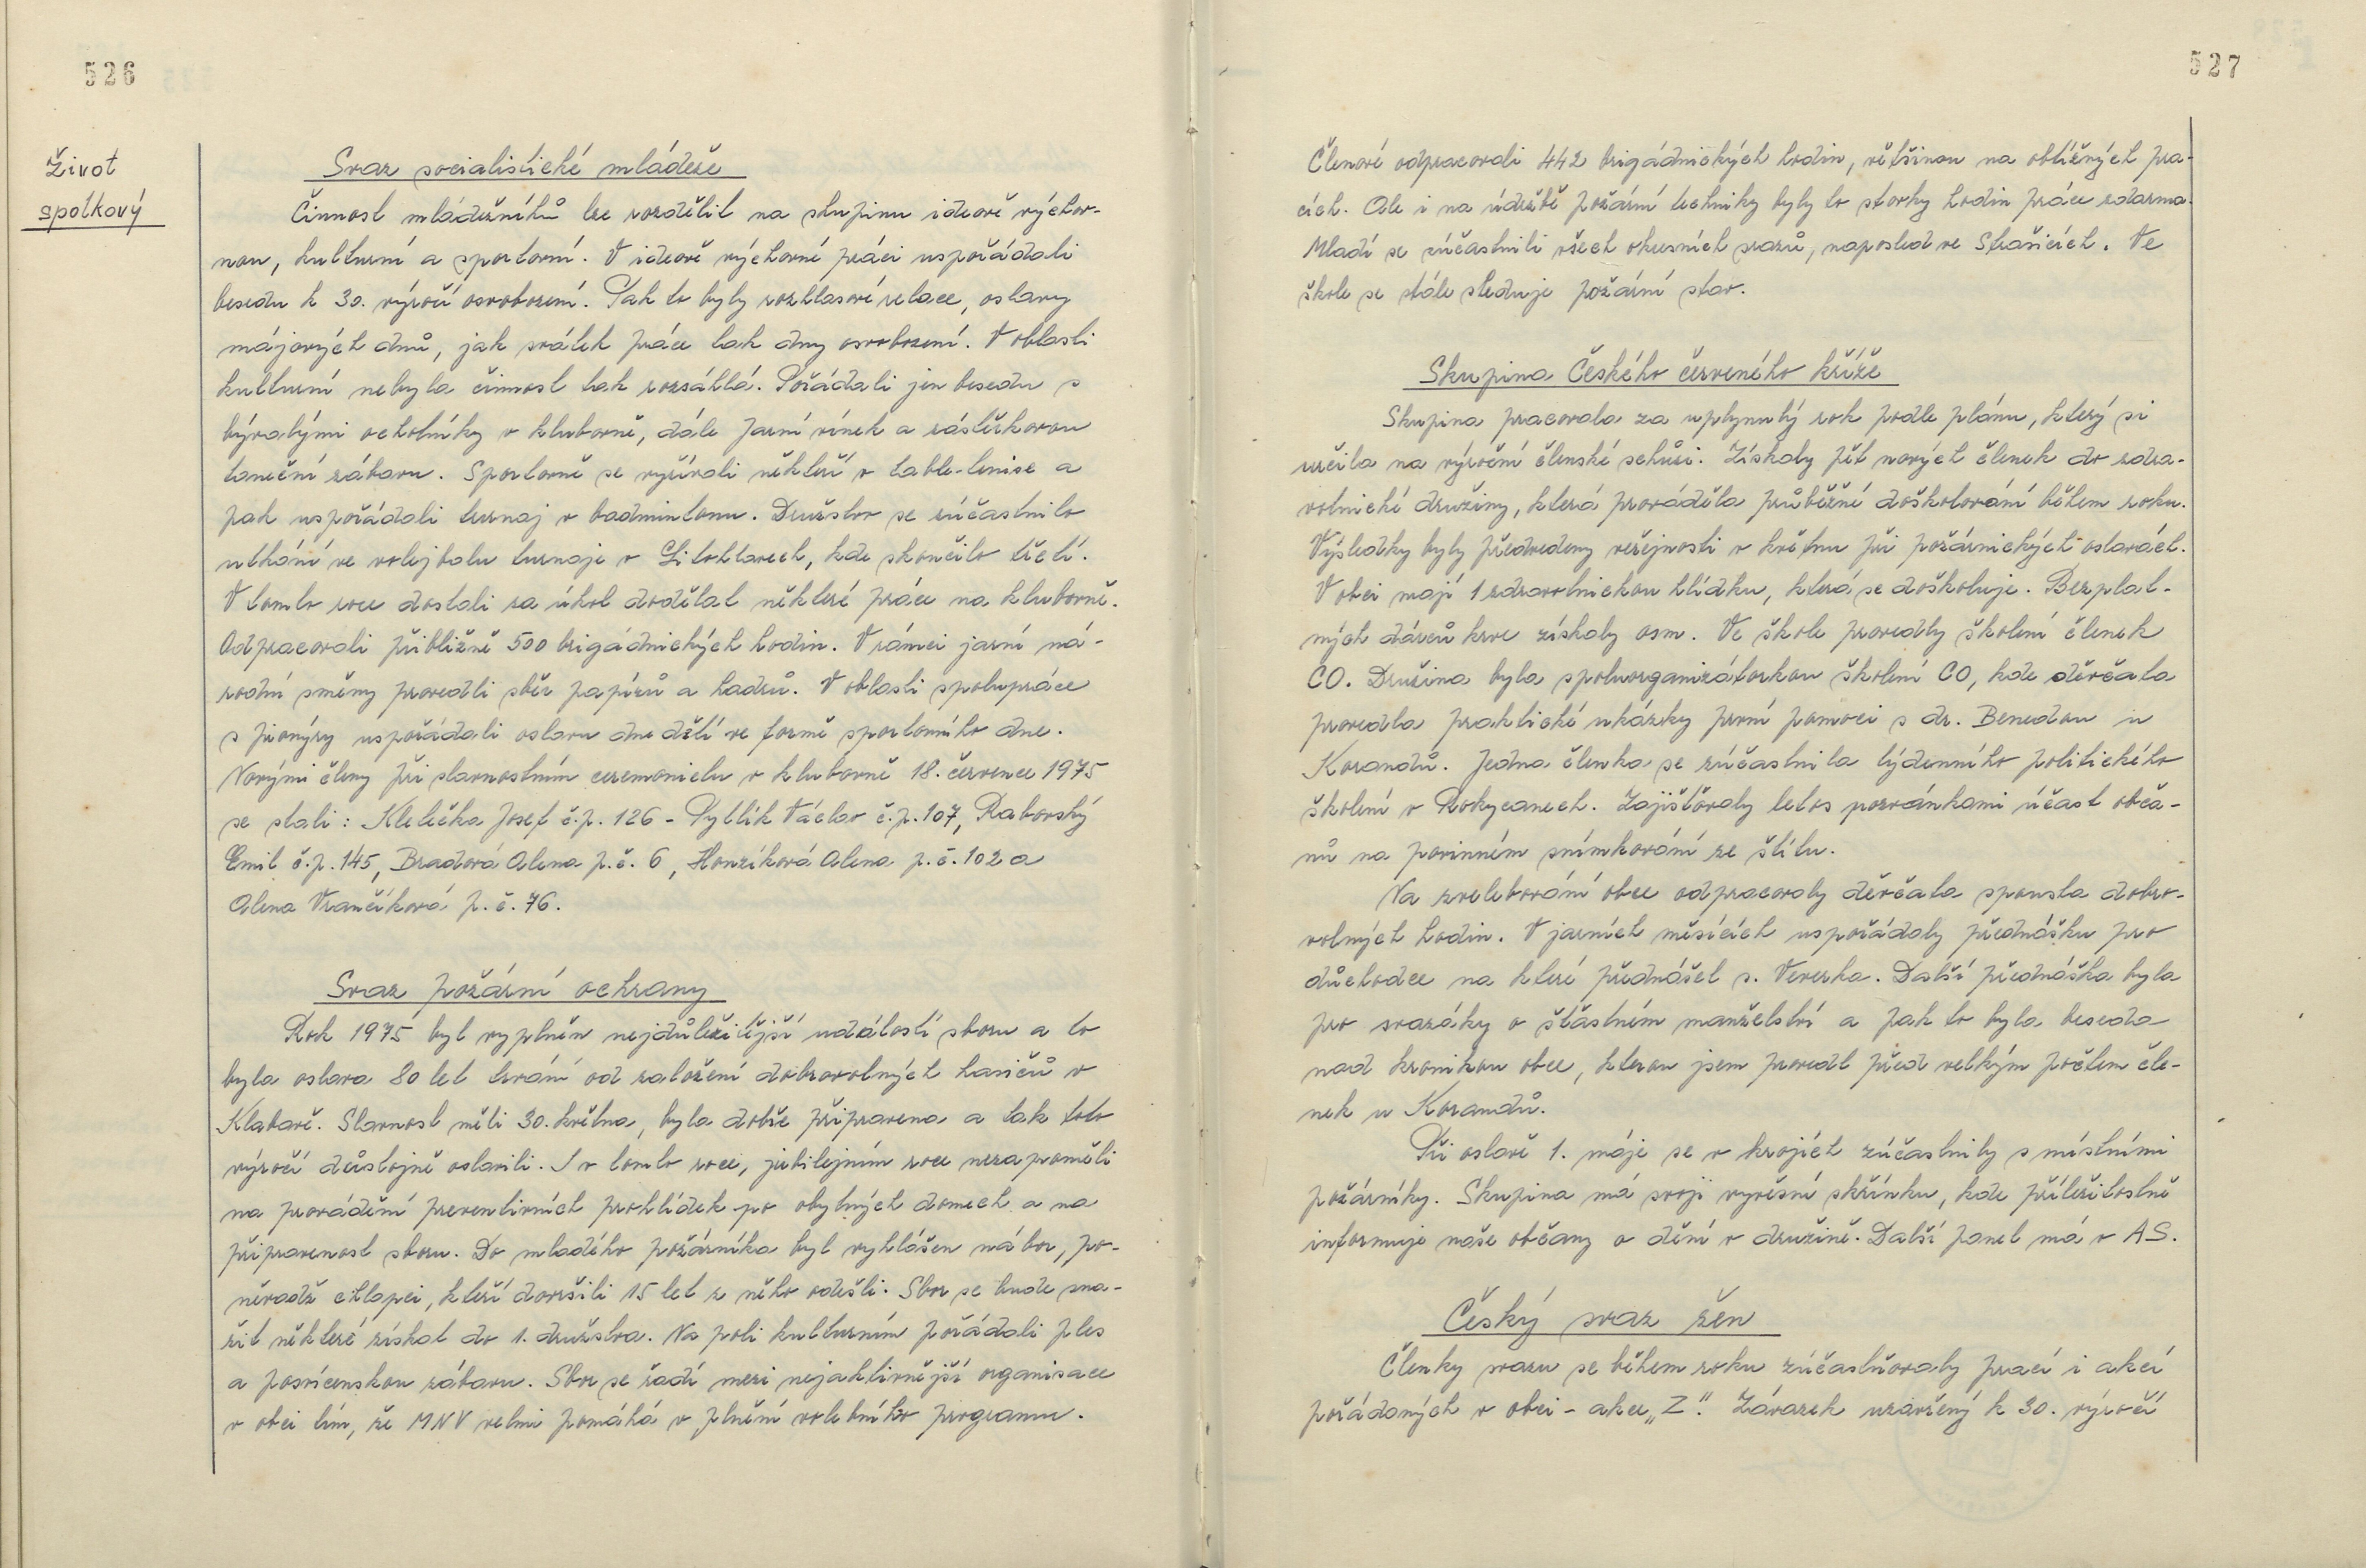 526
Život
spolkový
Svaz socialistické mládeže
Činnost mládežníků lze rozdělit na skupinu ideově výchov-
nou, kulturní a sportovní. V ideově výchovné práci uspořádali
besedu k 30. výročí osvobození. Pak to byly rozhlasové relace, oslavy
májových dnů, jak svátek práce tak dny osvobození. V oblasti
kulturní nebyla činnost tak rozsáhlá. Pořádali jen besedu s
bývalými ochotníky v klubovně, dále Jarní vínek a zástěrkovou
taneční zábavu. Sportovně se vyžívali někteří v table-tenise a
pak uspořádali turnaj v badmintonu. Družstvo se zúčastnilo
utkání ve volejbalu turnaje v Litohlavech, kde skončilo třetí.
V tomto roce dostali za úkol dodělat některé práce na klubovně.
Odpracovali přibližně 500 brigádnických hodin. V rámci jarní ná-
rodní směny provedli sběr papírů a hadrů. V oblasti spolupráce
s pionýry uspořádali oslavu dne dětí ve formě sportovního dne.
Novými členy při slavnostním ceremonielu v klubovně 18. července 1975
se stali: Klečka Josef č.p. 126 - Pytlík Václav č.p. 107, Rabovský
Emil č.p. 145, Bradová Alena p.č. 6, Honzíková Alena p.č. 102 a
Alena Vrančíková p.č. 76.
Svaz požární ochrany
Rok 1975 byl vyplněn nejdůležitější událostí sboru a to
byla oslava 80 let trvání od založení dobrovolných hasičů v
Klabavě. Slavnost měli 30. května, byla dobře připravena a tak toto
výročí důstojně oslavili. I v tomto roce, jubilejním roce nezapoměli
na provádění preventivních prohlídek po obytných domech a na
připravenost sboru. Do mladého požárníka byl vyhlášen nábor, po-
něvadž chlapci, kteří dovršili 15 let z něho odešli. Sbor se bude sna-
žit některé získat do 1. družstva. Na poli kulturním pořádali ples
a posvícenskou zábavu. Sbor se řadí mezi nejaktivnější organisace
v obci tím, že MNV velmi pomáhá v plnění volebního programu.
527
Členové odpracovali 442 brigádnických hodin, většinou na obtížných pra-
cích. Ale i na údržbě požární techniky byly to stovky hodin práce zdarma.
Mladí se zúčastnili všech okresních srazů, naposled ve Strašicích. Ve
škole se stále sleduje požární stav.
Skupina Českého červeného kříže
Skupina pracovala za uplynulý rok podle plánu, který si
určila na výroční členské schůzi. Získaly pět nových členek do zdra-
votnické družiny, která prováděla průběžné doškolování během roku.
Výsledky byly předvedeny veřejnosti v květnu při požárnických oslavách.
V obci mají 1 zdravotnickou hlídku, která se doškoluje. Bezplat-
ných dárců krve získaly osm. Ve škole provedly školení členek
CO. Družina byla spoluorganizátorkou školení CO, kde děvčata
provedla praktické ukázky první pomoci s dr. Benedou u
Korandů. Jedna členka se zúčastnila týdenního politického
školení v Rokycanech. Zajišťovaly letos pozvánkami účast obča-
nů na povinném snímkování ze štítu.
Na zvelebování obce odpracovaly děvčata spousta dobro-
volných hodin. V jarních měsících uspořádaly přednášku pro
důchodce na které přednášel s. Ververka. Další přednáška byla
pro svazáky o šťastném manželství a pak to byla beseda
nad kronikou obce, kterou jsem provedl před velkým počtem čle-
nek u Korandů.
Při oslavě 1. máje se v krojích zúčastnily s místními
požárníky. Skupina má svoji vývěsní skřínku, kde příležitostně
informuje naše občany o dění v družině. Další panel má v AS.
Český svaz žen
Členky svazu se během roku zúčastňovaly prací i akcí
pořádaných v obci - akce „Z". Závazek uzavřený k 30. výročí